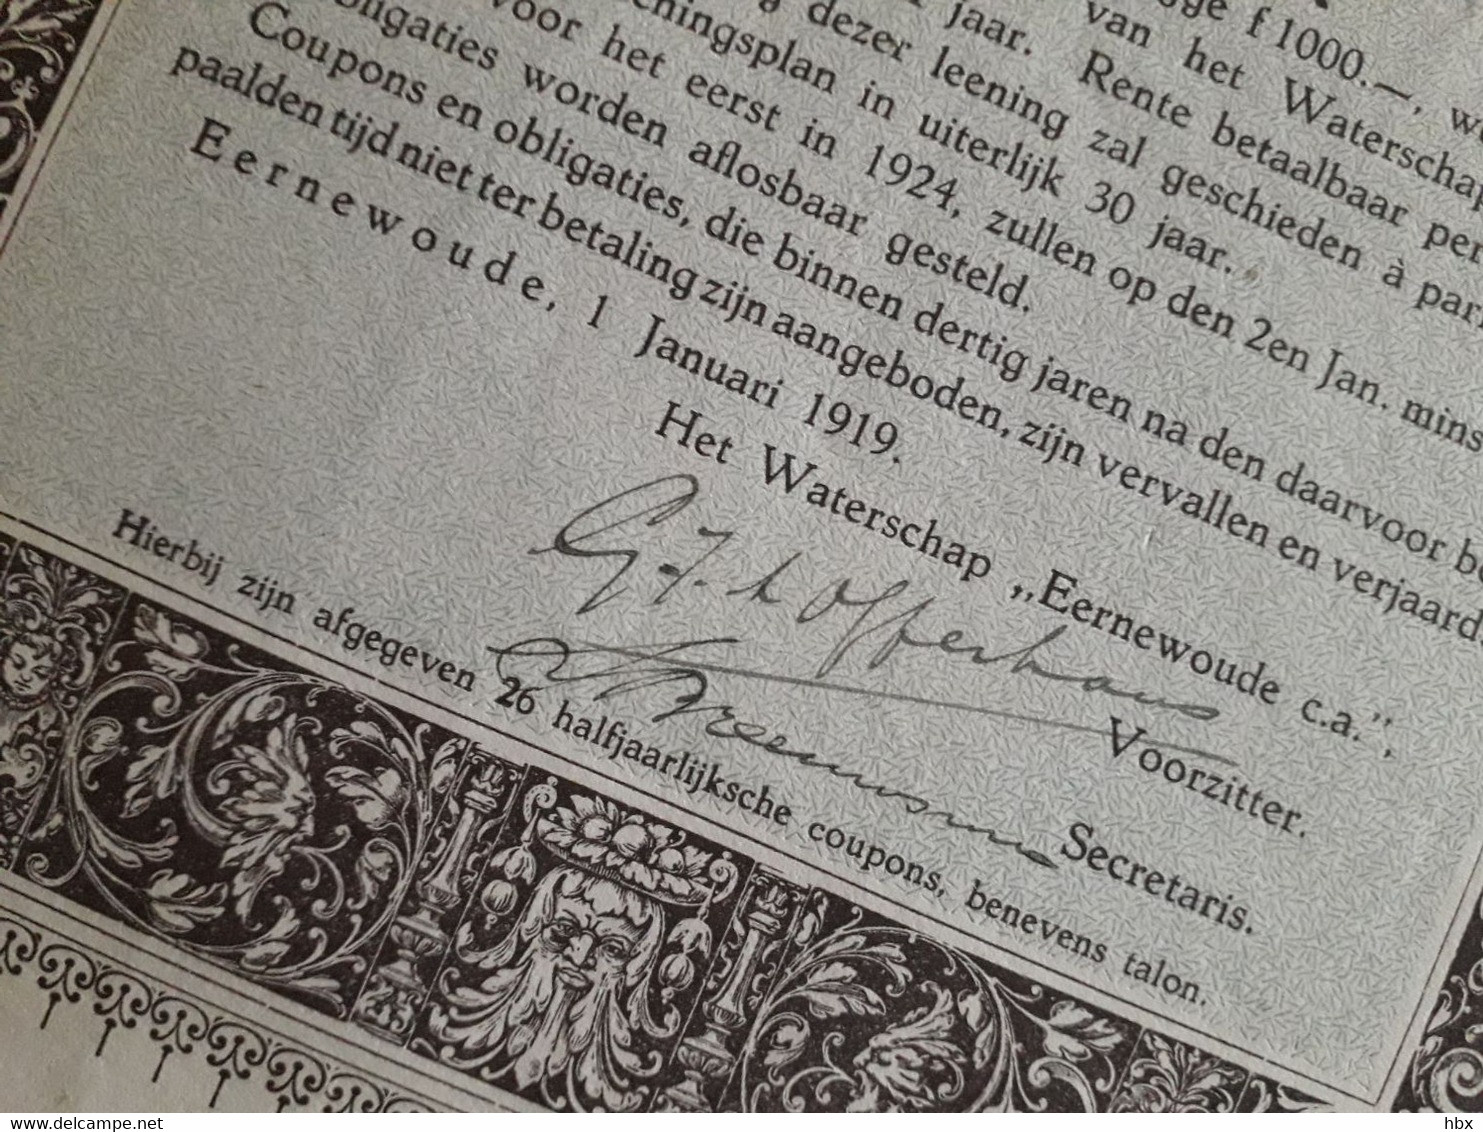 ge f 1000.—,
jaar. van het Waterschap
dezer leening Rente betaalbaar per
ningsplan in zal geschieden à pari
voor het eerst in uiterlijk 30 jaar.
ligaties worden 1924, zullen op den 2en Jan. mins
aflosbaar gesteld.
Coupons en obligaties, die binnen dertig jaren na den daarvoor be
paalden tijd niet ter betaling zijn aangeboden, zijn vervallen en verjaard.
Eernewoude, 1 Januari 1919.
Het Waterschap „Eernewoude c.a.",
G. J. v Hofferhaus
Voorzitter.
Secretaris.
Hierbij zijn afgegeven 26 halfjaarlijksche coupons, benevens talon.
www.delcampe.net
hbx